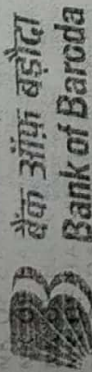 बैंक ऑफ़ बड़ौदा
Bank of Baroda